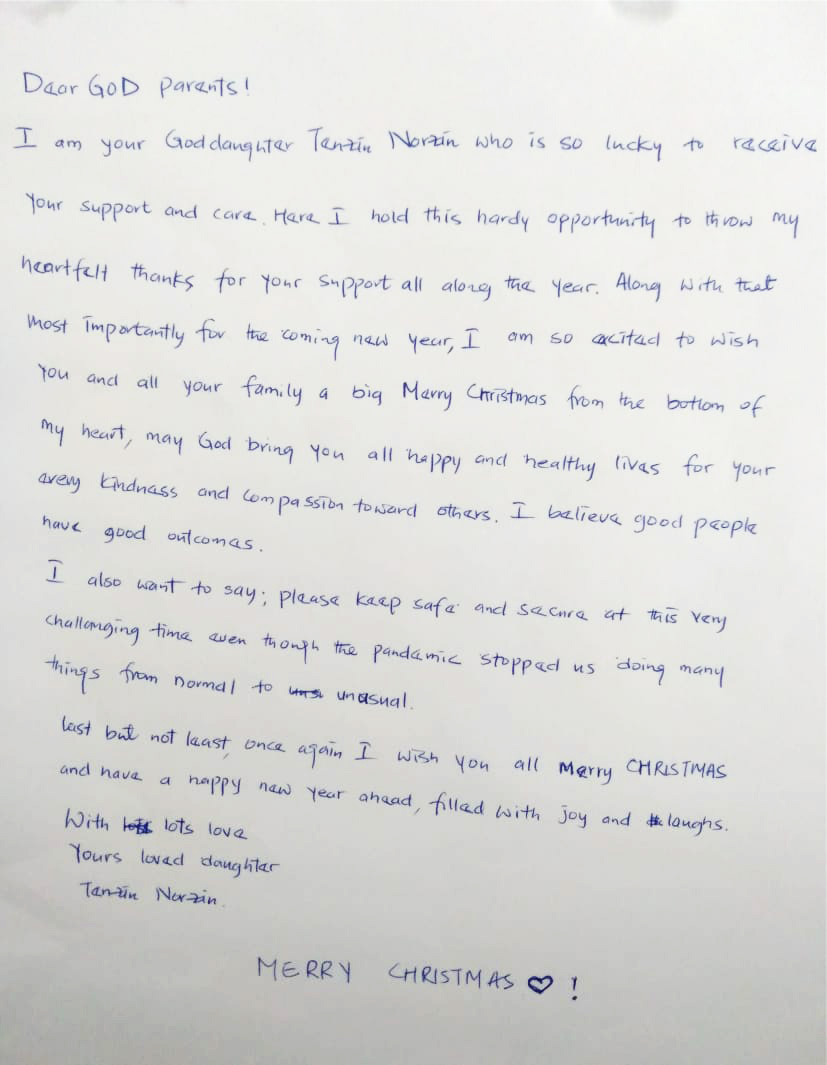 Dear GOD parents!
I am your Goddaughter Tenzin Norzin who is so lucky to receive
your support and care. Here I hold this hardy opportunity to throw my
heartfelt thanks for your support all along the year. Along with that
most importantly for the coming new year, I am so excited to wish
you and all your family a big Merry Christmas from the bottom of
my heart, may God bring you all happy and healthy lives for your
every kindness and compassion toward others. I believe good people
have good outcomes.
I also want to say; please keep safe and secure at this very
challenging time even though the pandemic stopped us doing many
things from normal to unusual.
last but not least, once again I wish you all Merry CHRISTMAS
and have a happy new year ahead, filled with joy and laughs.
With lots love
Yours loved daughter
Tenzin Norzin.
MERRY CHRISTMAS ♡ !